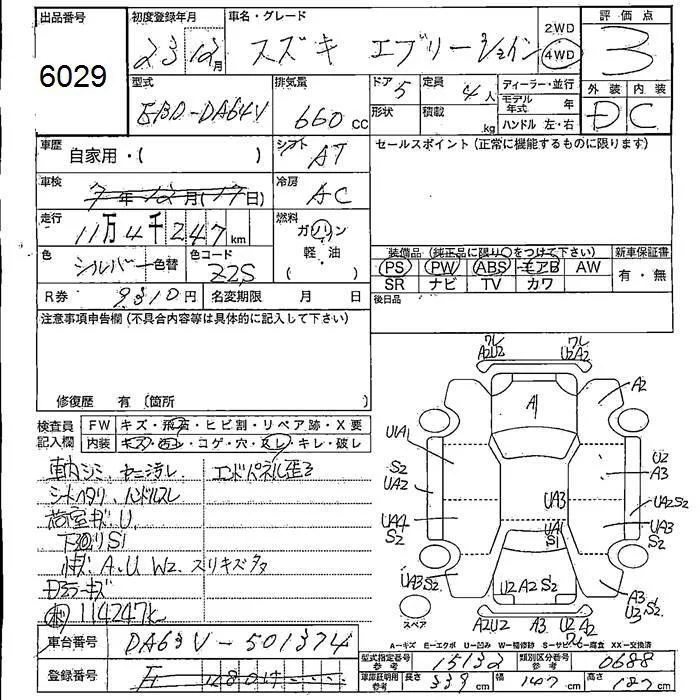 出品番号 初度登録年月 車名・グレード 評価点
6029
23 12月 スズキ エブリージョイン 2WD 4WD 3
型式 排気量 ドア 5 定員 4人 ディーラー・並行 外装 内装
EBD-DA64V 660cc 形状 積載 kg モデル年式 年 D C
ハンドル 左・右
車歴 自家用・( ) シフト AT セールスポイント (正常に機能するものに限ります)
車検 7年12月(17日) 冷房 AC
走行 11万4千247km 燃料 ガソリン
軽・油
( )
色 シルバー 色替 色コード Z2S
装備品 (純正品に限り○をつけて下さい) 新車保証書
PS PW ABS エアB AW 有・無
SR ナビ TV カワ
R券 9310円 名変期限 月 日 後日品
注意事項申告欄 (不具合内容等は具体的に記入して下さい)
修復歴 有 (箇所 )
検査員記入欄 FW キズ・飛石・ヒビ割・リペア跡・X要
内装 キズ・汚レ・コゲ・穴・スレ・キレ・破レ
車内シミ、ヤニ汚レ エンドパネル歪ミ
シートヘタリ、ハンドルスレ
荷室キズ、U
下回りS1
A、U W2 スリキズ多
114247k
車台番号 DA63V-501374
登録番号
A2U2 ワレ ワレ U2A2
A1 A2
U1A1
S2 U2
UA2 A3
UA3 UA2S2
UA4 UA1 UA3
S2 S1 S2
UA3S2 U2A2S2 A3
U3S2
スペア A2U2 A3 U2A2
A-キズ E-エクボ U-凹み W-補修跡 S-サビ C-腐食 XX-交換済
型式指定番号 参考 15132 類別区分番号 参考 0688
車庫証明用参考 長さ 339cm 幅 147cm 高さ 187cm